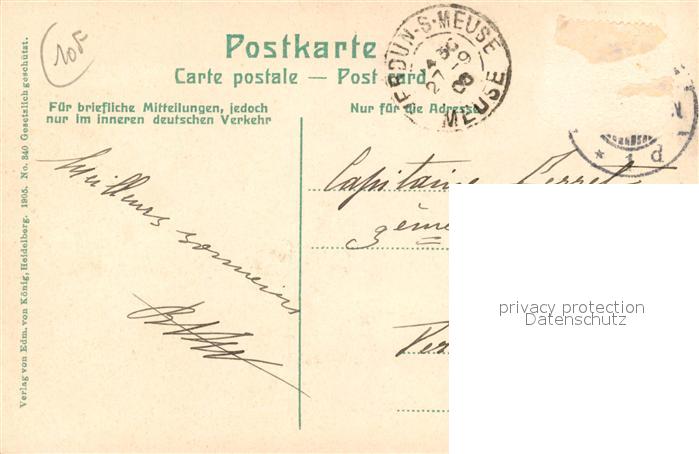 10F
Postkarte
Carte postale — Post card
Für briefliche Mitteilungen, jedoch
nur im inneren deutschen Verkehr
Nur für die Adresse
VERDUN-S-MEUSE
MEUSE
* 1 d
Verlag von Edm. von König, Heidelberg. 1905. No. 340 Gesetzlich geschützt.
Meilleurs souvenirs
Capitaine
3ème
privacy protection
Datenschutz